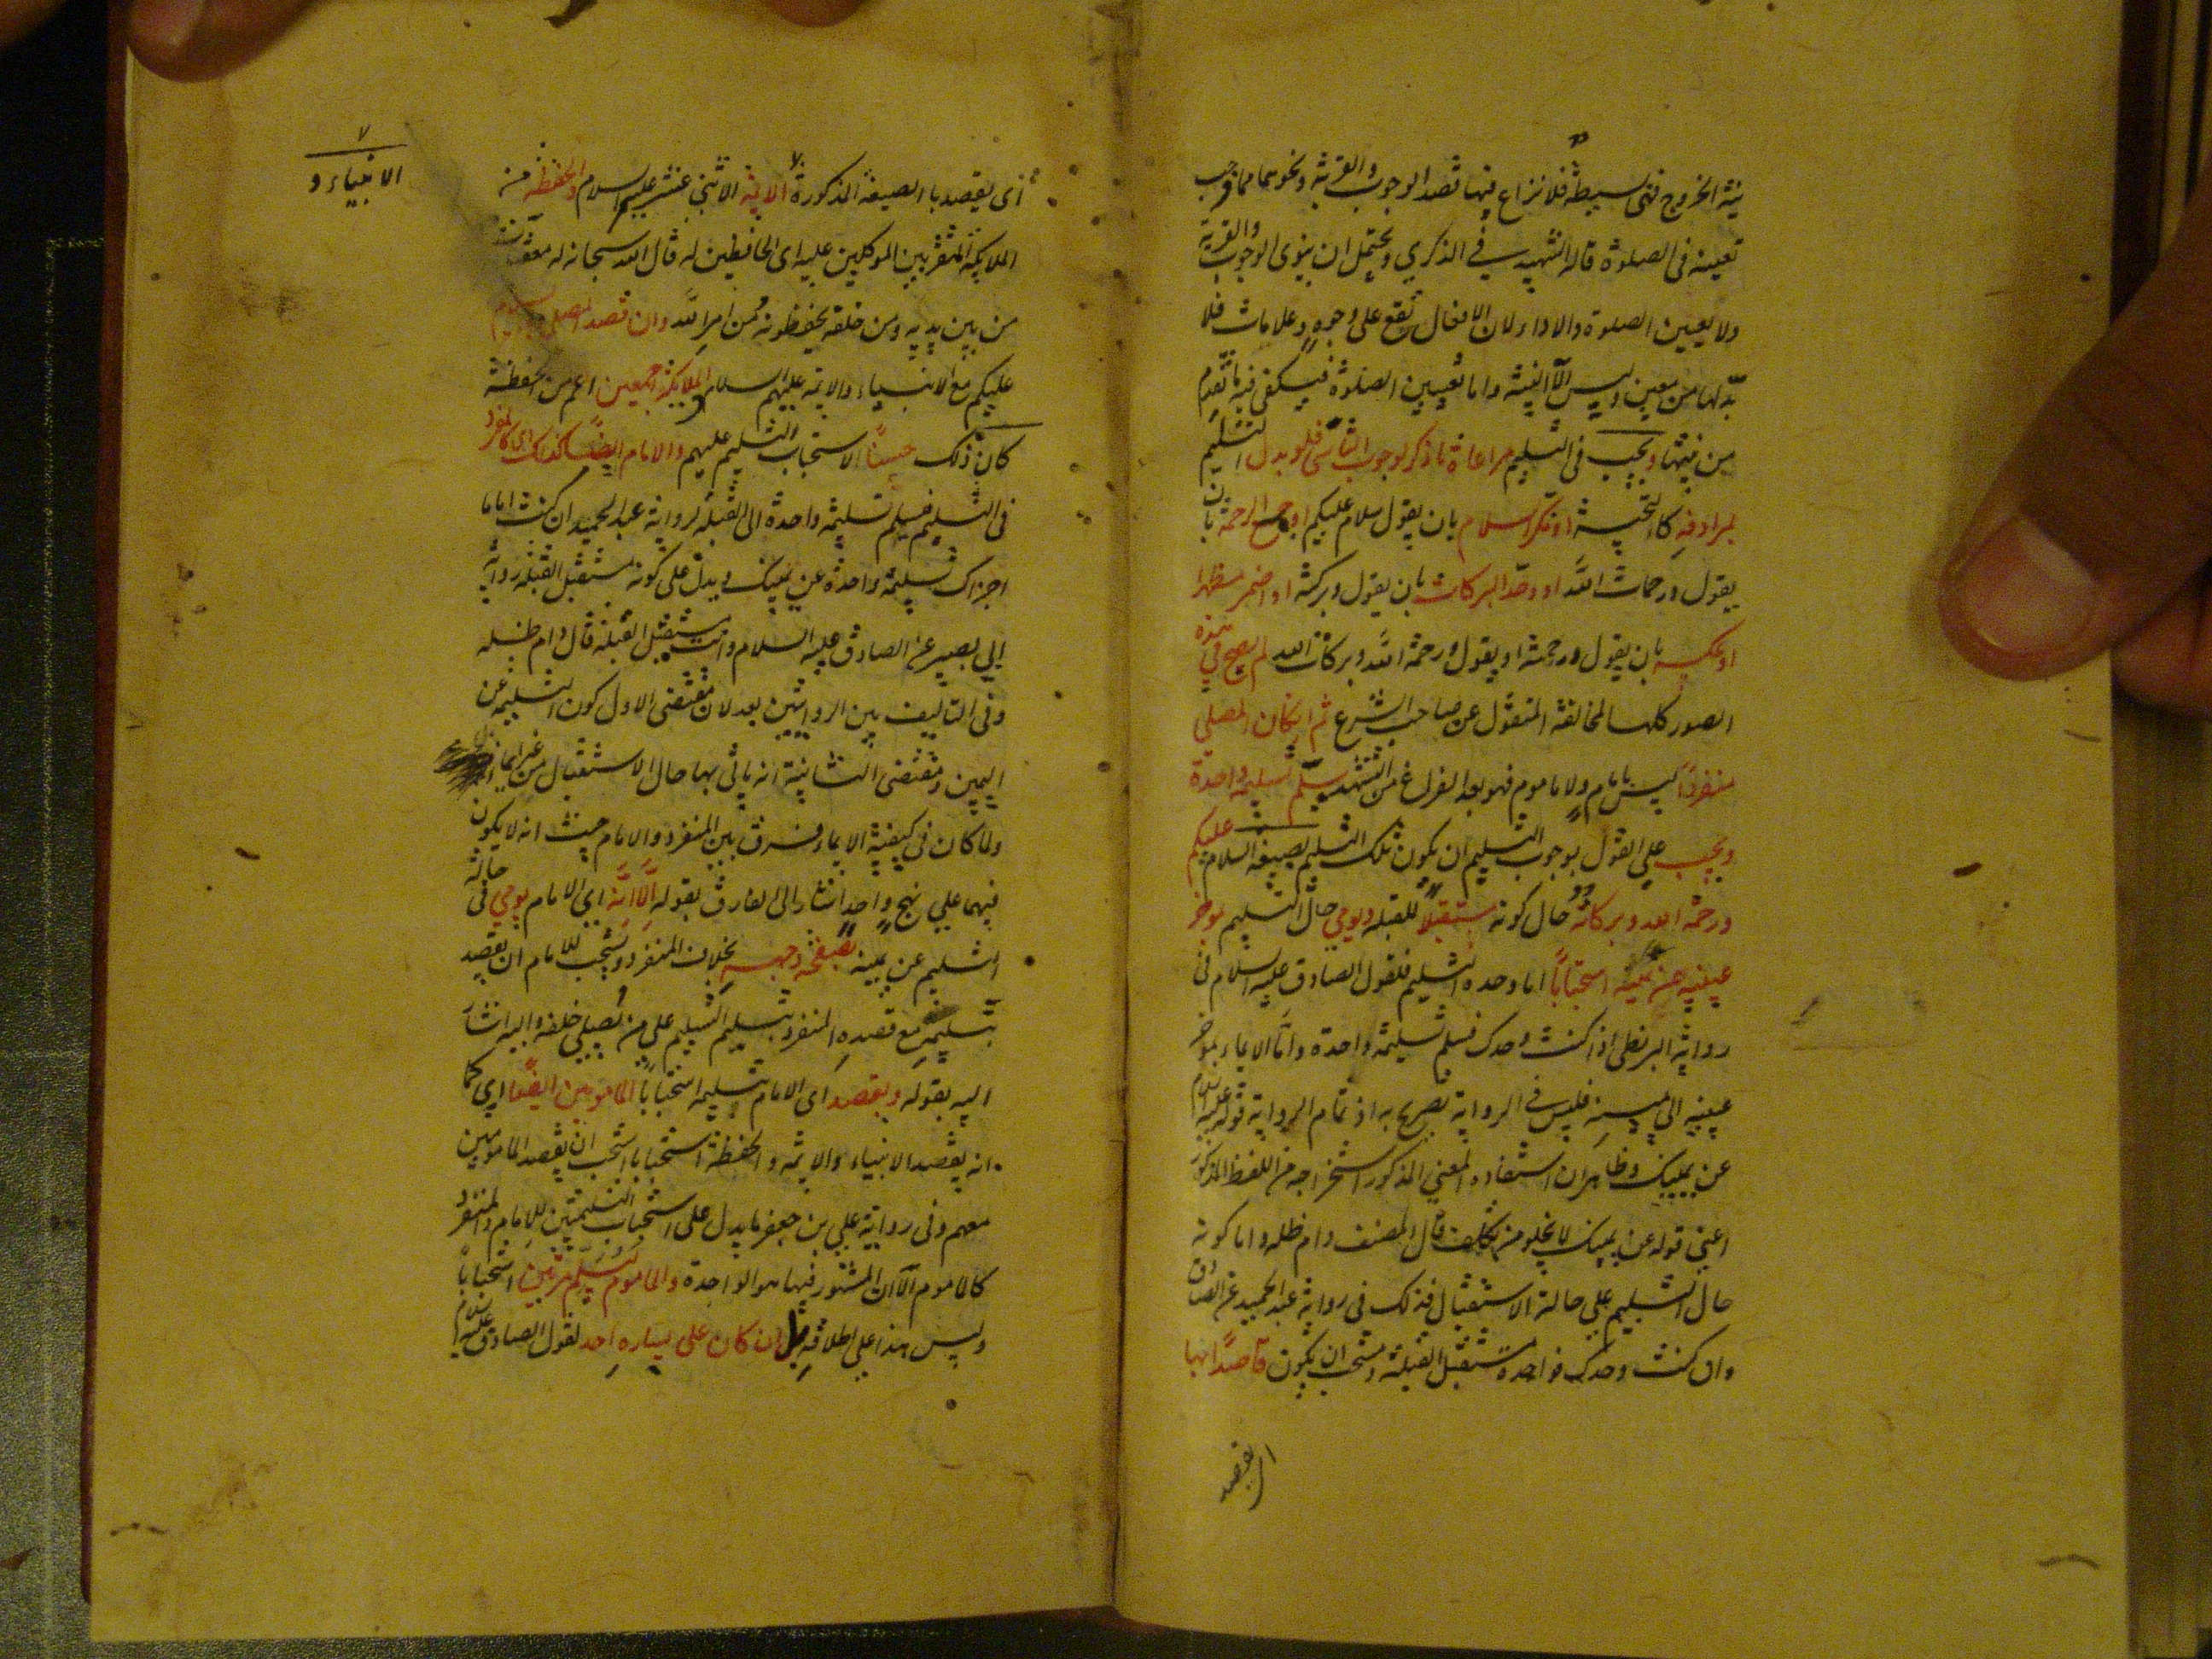 نية الخروج فهى بسيطة فلا نزاع فيها قصد الوجوب والقربة ونحوهما مما وجب
تعيينه فى الصلوة قاله الشهيد في الذكري ويحتمل ان ينوى الوجوب والقربة
ولا تعيين الصلوة والاداء لان الافعال تقع على وجوه وعلامات فلا
بدّ لها من معين وليس الّا النية واما تعيين الصلوة فيكفى فيه ما تقدم
من نيتها ويجب فى التسليم مراعاة ما ذكر لوجوب التأسى فلو بدل التسليم
بمرادفه كالتحية او نكر السلام بان يقول سلام عليكم او جمع الرحمة بان
يقول ورحمات اللّه او وحّد البركات بان يقول وبركته او اضمر مظهرا
او عكسه بان يقول ورحمته او يقول ورحمة اللّه وبركات الله لم يصح في هذه
الصور كلها لمخالفة المنقول عن صاحب الشرع ثم ان كان المصلي
منفردًا ليس بامام ولا ماموم فهو بعد الفراغ من التشهد يسلّم تسليمة واحدة
ويجب على القول بوجوب التسليم ان يكون تلك التسليم بصيغة السلام عليكم
ورحمة الله وبركاته حال كونه مستقبلاً للقبلة ويومي حال التسليم بموخر
عينيه عن يمينه استحبابًا اما وحدة التسليم فلقول الصادق عليه السلام فى
رواية البزنطى اذا كنت وحدك فسلم تسليمة واحدة وامّا الايماء بموخر
عينيه الى يمينه فليس في الرواية تصريح به اذ تمام الرواية قوله عليه السلام
عن يمينك وظاهر ان استفادة المعني المذكور استخراجه من اللفظ المذكور
اعني قوله عن يمينك لا يخلو من تكلف قال المصنف دام ظله واما كونه
حال التسليم علي حالة الاستقبال فذلك فى رواية عبد الحميد عن الصادق
وان كنت وحدك فواحدة مستقبل القبلة ومستحب ان يكون قاصدًا بها
اى يقصد
اى يقصد بالصيغة المذكورة الائمة الاثنى عشر عليهم السلام والحفظة من
الانبياء و
الملايكة المقربين الموكلين عليه اى الحافظين له قال الله سبحانه له معقبات
من بين يديه ومن خلفه يحفظونه من امر اللّه وان قصد المصلى بالسلام
عليكم مع الانبياء والائمة عليهم السلام الملايكة اجمعين اعم من الحفظة
كان ذلك حسنًا لاستحباب التسليم عليهم والامام ايضًا كذلك اى كالمنفرد
فى التسليم فيسلم تسليمة واحدة الى القبلة لرواية عبد الحميد ان كنت اماما
اجزاك تسليمة واحدة عن يمينك ويدل على كونه مستقبل القبلة رواية
ابي بصير عن الصادق عليه السلام وانت مستقبل القبلة قال دام ظله
وفى التاليف بين الروايتين بعد لان مقتضى الاول كون التسليمة عن
اليمين ومقتضى الثانية انه ياتى بها حال الاستقبال من غير ايماء
ولما كان فى كيفية الايماء فرق بين المنفرد والامام حيث انه لا يكون
فيهما على نهج واحد اشار الى الفارق بقوله الّا انّه اي الامام يومي فى حالة
التسليم عن يمينه بصفحة وجهه بخلاف المنفرد ويستحب للامام ان يقصد
بتسليمه مع قصده المنفرد بتسليم التسليم على من يُصلي خلفه واليه اشار
اليه بقوله ويقصد اى الامام بتسليمه استحبابًا المامومين ايضًا اى كما
انه يقصد الانبياء والائمة والحفظة استحبابا استحب ان يقصد المامومين
معهم وفى رواية علي بن جعفر ما يدل على استحباب التسليمتين للامام والمنفرد
كالماموم الّا ان المشهور فيها هو الواحدة والماموم يُسلّم مرّتين استحبابًا
وليس هذا على اطلاقه بل ان كان على يساره احد لقول الصادق عليه السلام